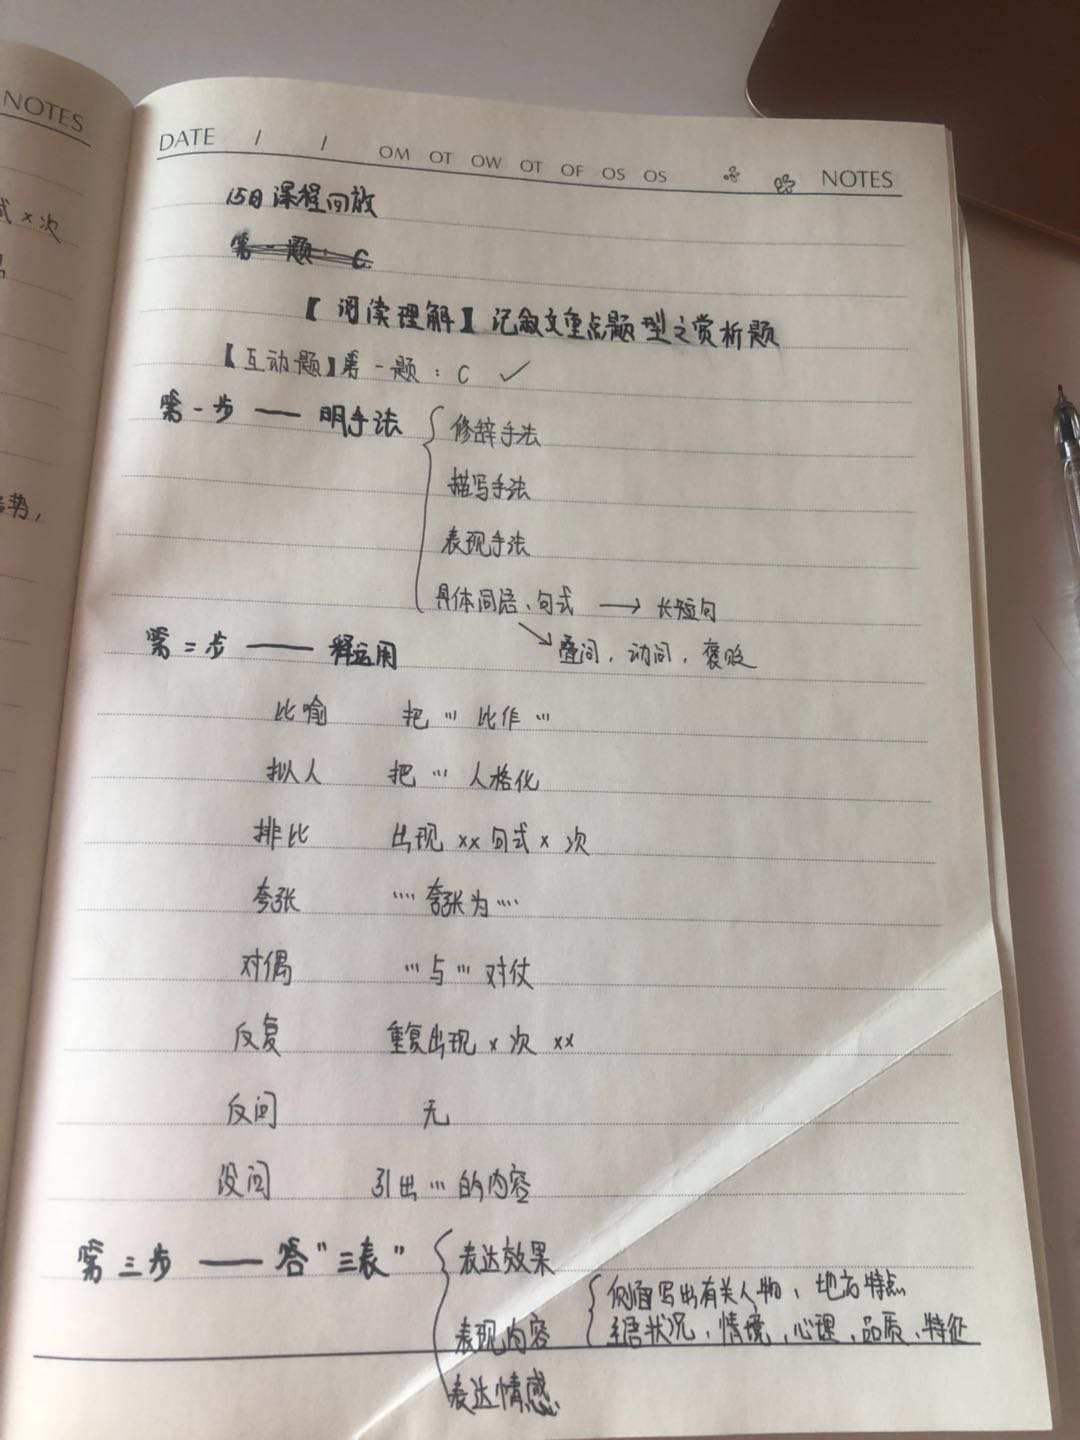 NOTES
式×次
势,
DATE / / OM OT OW OT OF OS OS NOTES
15日课程回放
第一题:C
【阅读理解】记叙文重点题型之赏析题
【互动题】第一题:C ✓
第一步——明手法
修辞手法
描写手法
表现手法
具体词语、句式 → 长短句
叠词,动词,褒贬
第二步——释运用
比喻 把…比作…
拟人 把…人格化
排比 出现××句式×次
夸张 …夸张为…
对偶 …与…对仗
反复 重复出现×次××
反问 无
设问 引出…的内容
第三步——答“三表”
表达效果
表现内容
侧面写出有关人物、地方特点
状况,情境,心理,品质,特征
表达情感